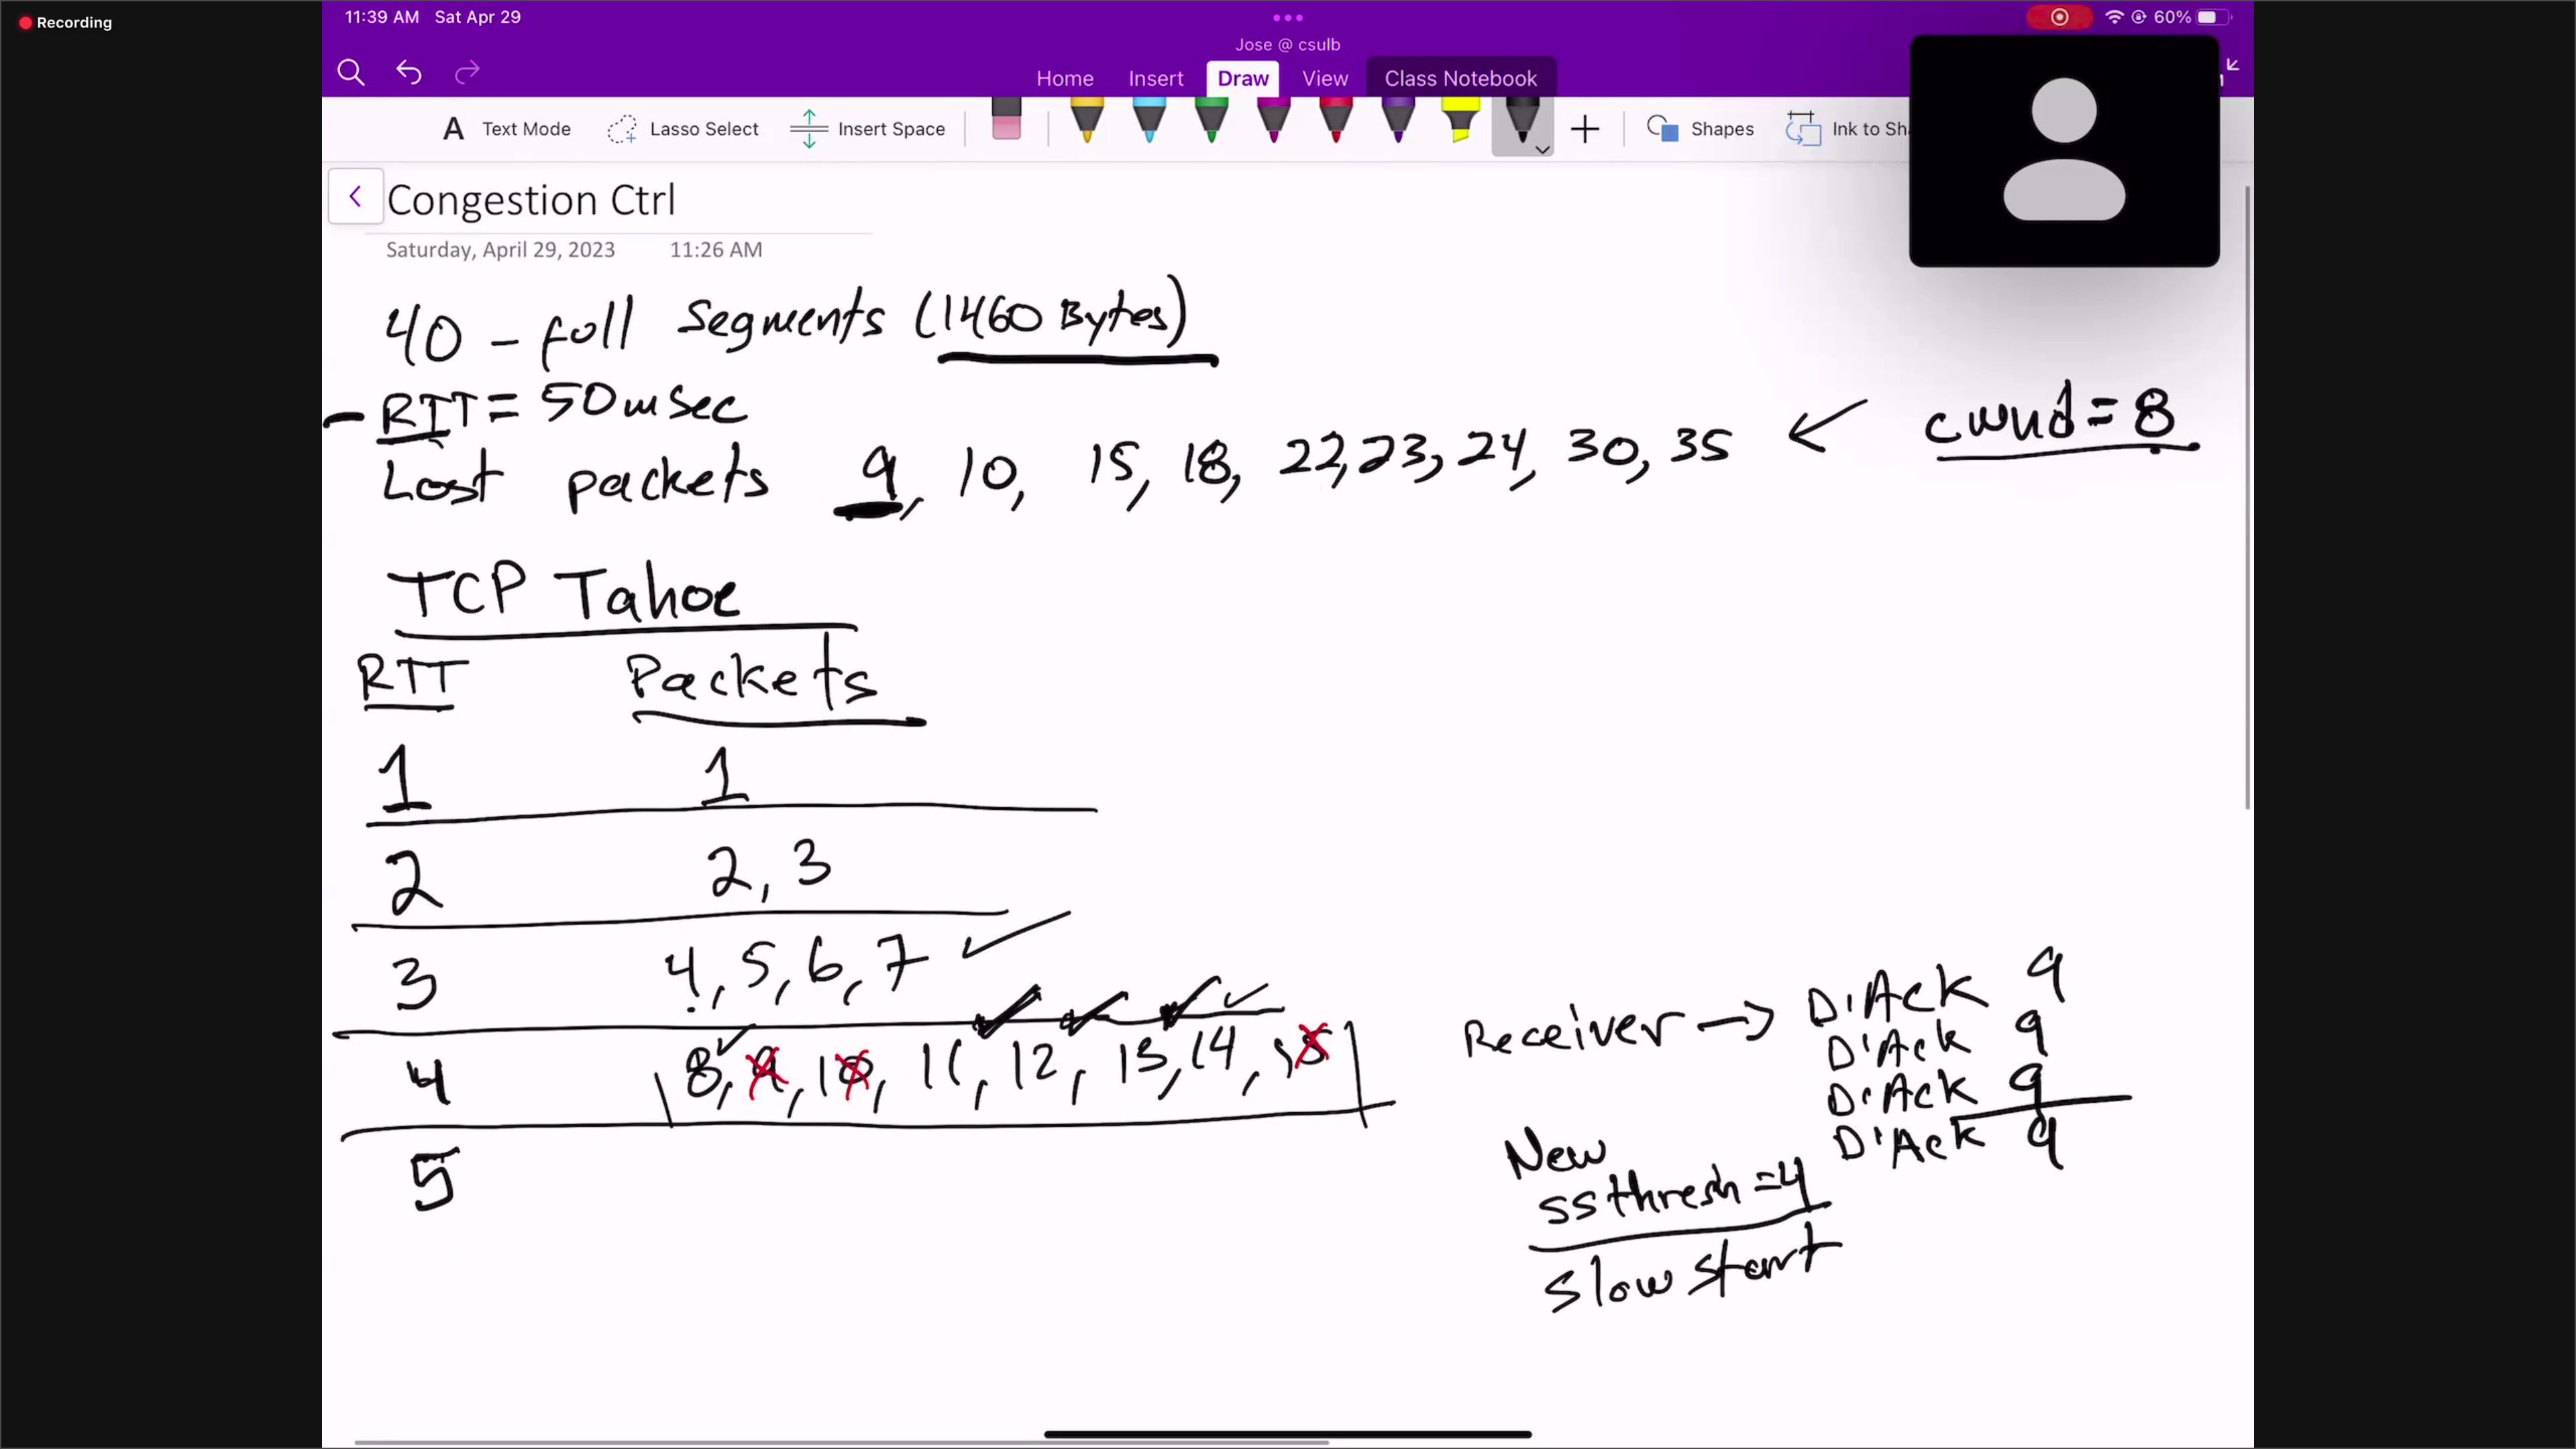 Recording
11:39 AM Sat Apr 29
60%
Jose @ csulb
Home Insert Draw View Class Notebook
A Text Mode Lasso Select Insert Space Shapes Ink to Sh
Congestion Ctrl
Saturday, April 29, 2023 11:26 AM
40 - full Segments (1460 Bytes)
- RTT = 50 msec
Lost packets 9, 10, 15, 18, 22, 23, 24, 30, 35 ← cwnd = 8
TCP Tahoe
RTT Packets
1 1
2 2, 3
3 4, 5, 6, 7
4 8, 9, 10, 11, 12, 13, 14, 15
5
Receiver → D'Ack 9
D'Ack 9
D'Ack 9
D'Ack 9
New
ssthresh = 4
slow start